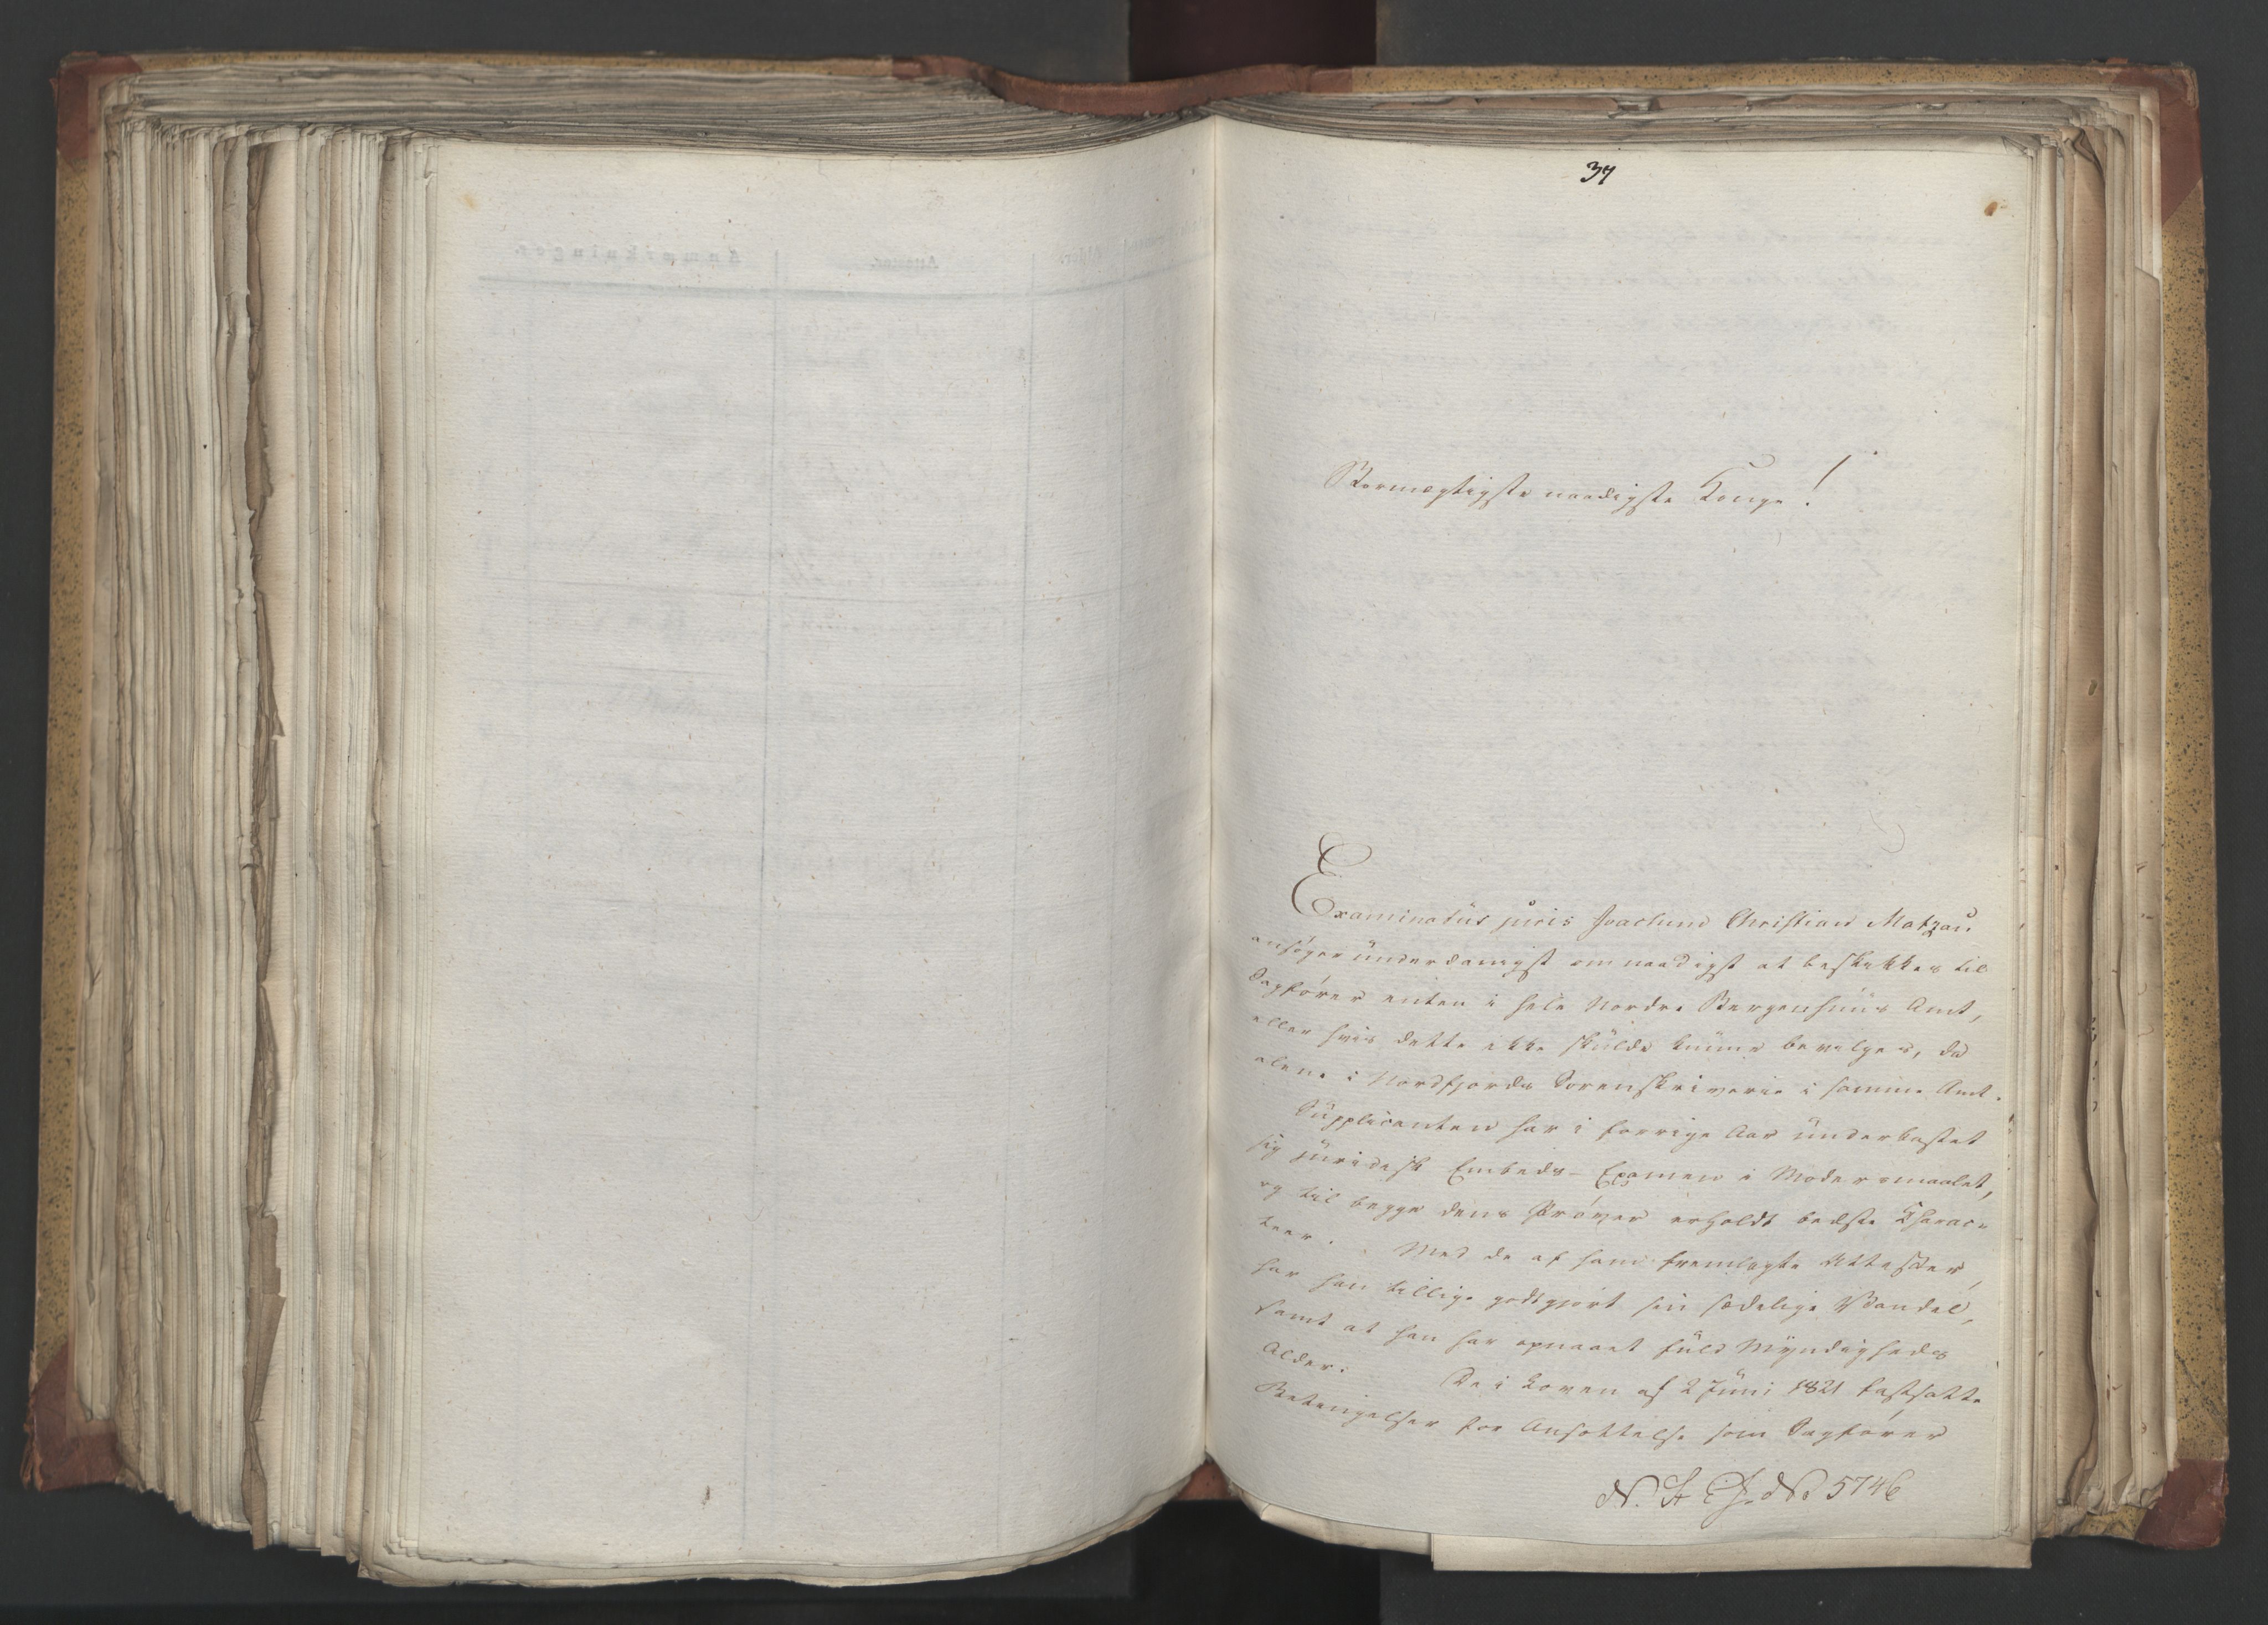 34
Stormægtigste naadigste Konge!
Examinatus juris Joachim Christian Matzau
ansøger underdanigst om naadigst at beskikkes til
Sagfører enten i hele Nordre Bergenhuus Amt,
eller hvis dette ikke skulde kunne bevilges, da
alene i Nordfjords Sorenskriverie i samme Amt.
Supplicanten har i forrige Aar underkastet
sig juridisk Embeds-Examen i Modersmaalet,
og til begge dens Prøver erholdt bedste Charac-
teer. Med de af ham fremlagte Attester,
har han tillige godtgjort sin sædelige Vandel,
samt at han har opnaaet fuld Myndigheds
Alder. De i Loven af 2 Juni 1821 fastsatte
Betingelser for Ansættelse som Sagfører
No 574